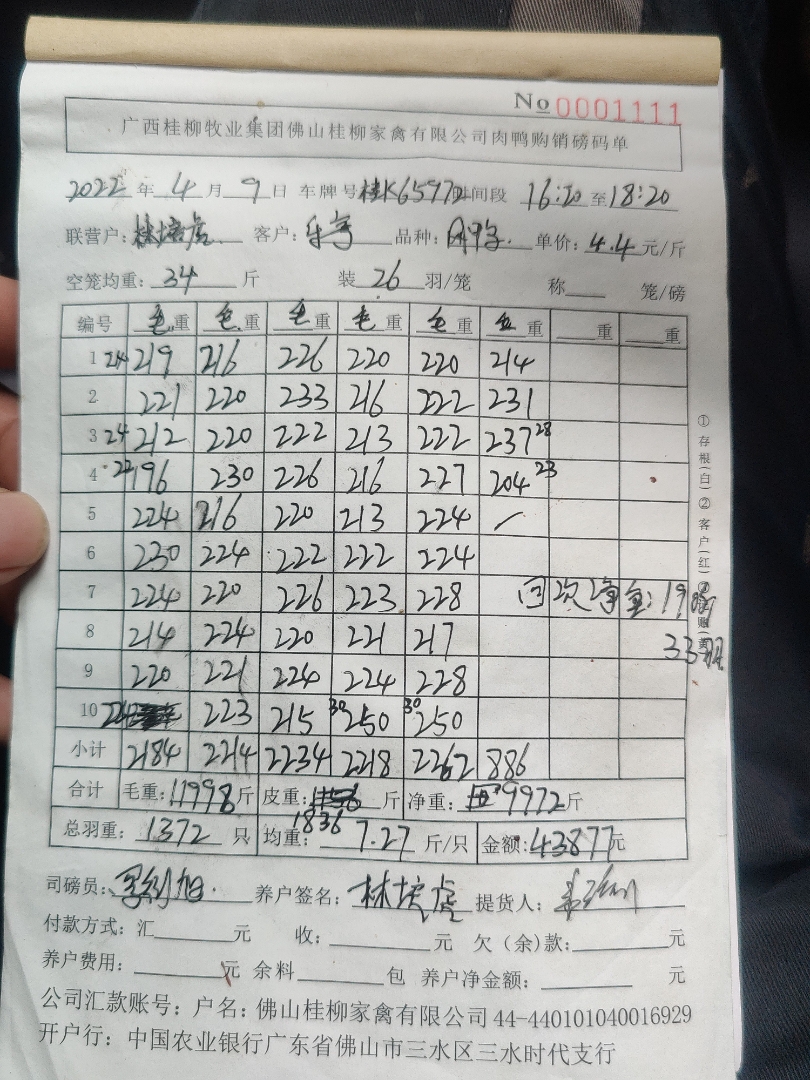 No 0001111
广西桂柳牧业集团佛山桂柳家禽有限公司肉鸭购销磅码单
2022 年 4 月 9 日 车牌号 桂K65972 时间段 16:20 至 18:20
联营户: 林培虎 客户: 单价: 4.4 元/斤 品种:
空笼均重: 34 斤 装 26 羽/笼 称 笼/磅
编号 毛重 毛重 毛重 毛重 毛重 毛重 重 重
1 24 219 216 226 220 220 214
2 221 220 233 216 222 231
3 24 212 220 222 213 222 237 28
4 22 196 230 226 216 227 204 23
5 224 216 220 213 224 /
6 230 224 222 222 224
7 224 220 226 223 228 回次净重: 19
8 214 224 220 221 217 33
9 220 221 224 224 228
10 224 223 215 30 250 30 250
小计 2184 2214 2234 2218 2262 886
合计 毛重: 11998 斤 皮重: 1836 斤 净重: 9972 斤
总羽重: 1372 只 均重: 7.27 斤/只 金额: 43877 元
司磅员: 养户签名: 林培虎 提货人:
付款方式: 汇 元 收: 元 欠(余)款: 元
养户费用: 元 余料 包 养户净金额: 元
公司汇款账号: 户名: 佛山桂柳家禽有限公司 44-440101040016929
开户行: 中国农业银行广东省佛山市三水区三水时代支行
①存根(白)②客户(红)